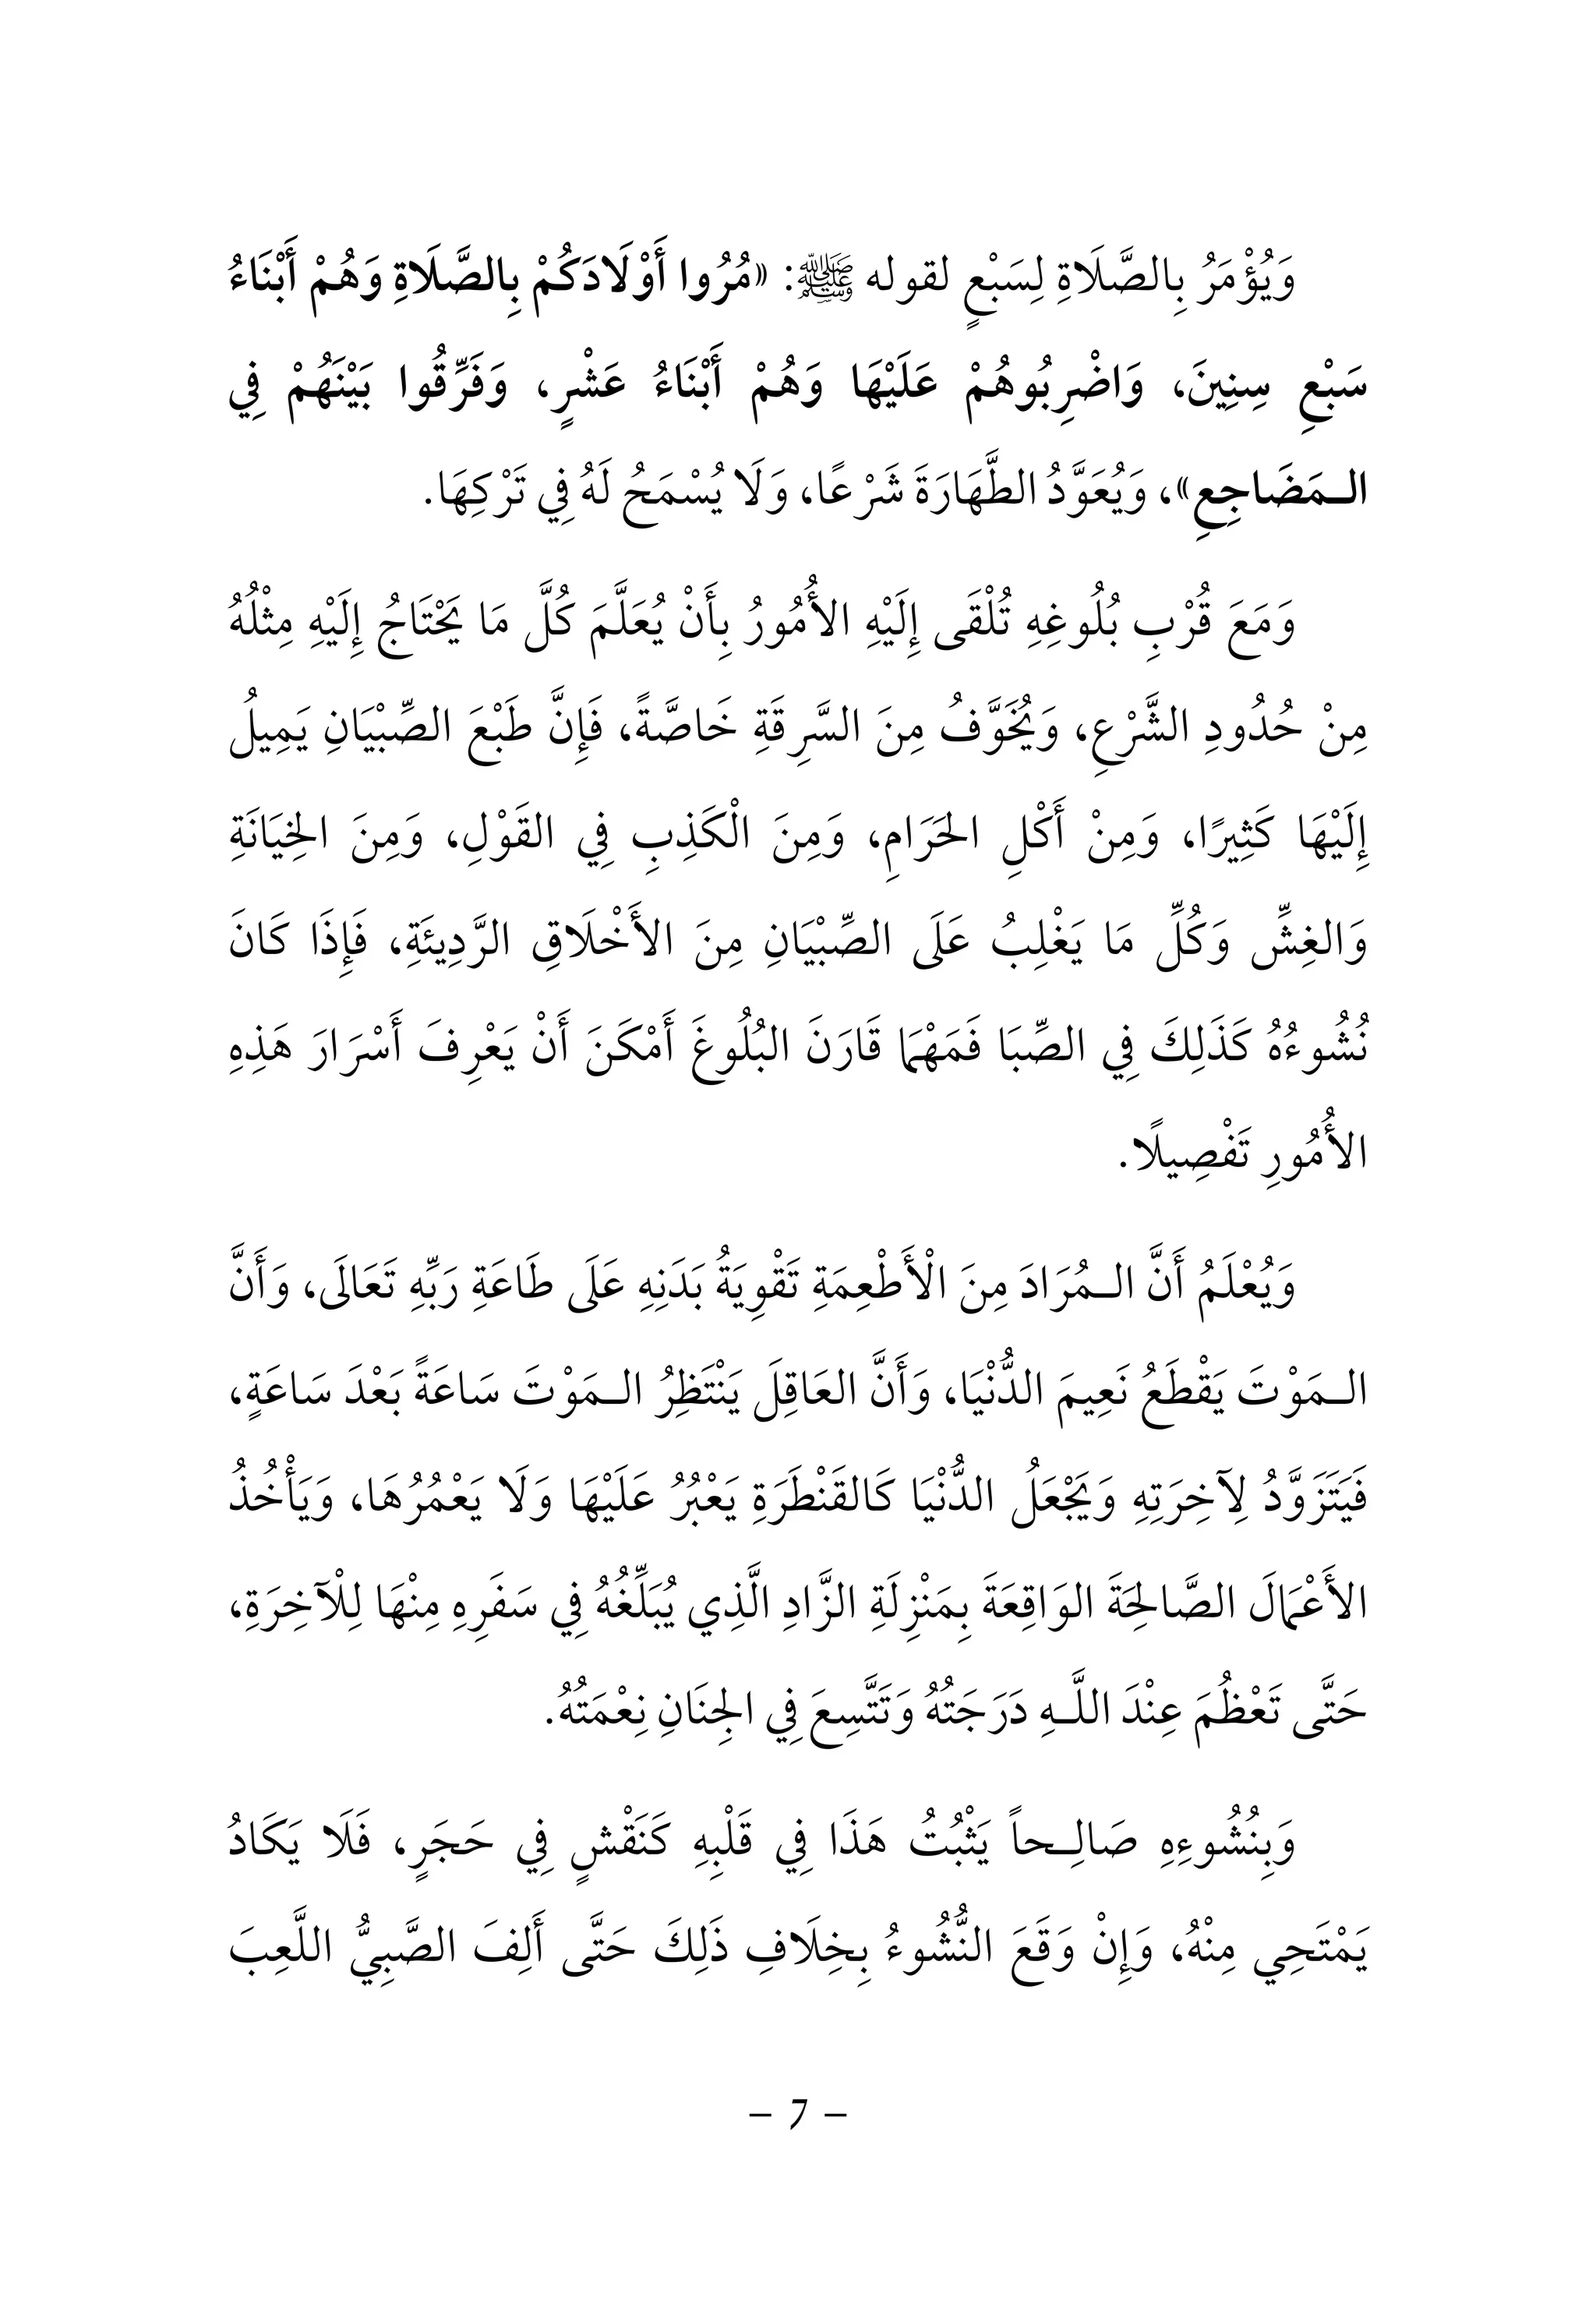 وَيُؤْمَرُ بِالصَّلَاةِ لِسَبْعٍ لقوله ﷺ: «مُرُوا أَوْلَادَكُمْ بِالصَّلَاةِ وَهُمْ أَبْنَاءُ
سَبْعِ سِنِينَ، وَاضْرِبُوهُمْ عَلَيْهَا وَهُمْ أَبْنَاءُ عَشْرٍ، وَفَرِّقُوا بَيْنَهُمْ فِي
الـمَضَاجِعِ»، وَيُعَوَّدُ الطَّهَارَةَ شَرْعًا، وَلَا يُسْمَحُ لَهُ فِي تَرْكِهَا.
وَمَعَ قُرْبِ بُلُوغِهِ تُلْقَى إِلَيْهِ الأُمُورُ بِأَنْ يُعَلَّمَ كُلَّ مَا يَحْتَاجُ إِلَيْهِ مِثْلُهُ
مِنْ حُدُودِ الشَّرْعِ، وَيُخَوَّفُ مِنَ السَّرِقَةِ خَاصَّةً، فَإِنَّ طَبْعَ الصِّبْيَانِ يَمِيلُ
إِلَيْهَا كَثِيرًا، وَمِنْ أَكْلِ الحَرَامِ، وَمِنَ الْكَذِبِ فِي القَوْلِ، وَمِنَ الخِيَانَةِ
وَالغِشِّ وَكُلِّ مَا يَغْلِبُ عَلَى الصِّبْيَانِ مِنَ الأَخْلَاقِ الرَّدِيئَةِ، فَإِذَا كَانَ
نُشُوءُهُ كَذَلِكَ فِي الصِّبَا فَمَهْمَا قَارَنَ البُلُوغَ أَمْكَنَ أَنْ يَعْرِفَ أَسْرَارَ هَذِهِ
الأُمُورِ تَفْصِيلًا.
وَيُعْلَمُ أَنَّ الـمُرَادَ مِنَ الْأَطْعِمَةِ تَقْوِيَةُ بَدَنِهِ عَلَى طَاعَةِ رَبِّهِ تَعَالَى، وَأَنَّ
الـمَوْتَ يَقْطَعُ نَعِيمَ الدُّنْيَا، وَأَنَّ العَاقِلَ يَنْتَظِرُ الـمَوْتَ سَاعَةً بَعْدَ سَاعَةٍ،
فَيَتَزَوَّدُ لِآخِرَتِهِ وَيَجْعَلُ الدُّنْيَا كَالقَنْطَرَةِ يَعْبُرُ عَلَيْهَا وَلَا يَعْمُرُهَا، وَيَأْخُذُ
الأَعْمَالَ الصَّالِحَةَ الوَاقِعَةَ بِمَنْزِلَةِ الزَّادِ الَّذِي يُبَلِّغُهُ فِي سَفَرِهِ مِنْهَا لِلْآخِرَةِ،
حَتَّى تَعْظُمَ عِنْدَ اللَّـهِ دَرَجَتُهُ وَتَتَّسِعَ فِي الجِنَانِ نِعْمَتُهُ.
وَبِنُشُوءِهِ صَالِـحاً يَثْبُتُ هَذَا فِي قَلْبِهِ كَنَقْشٍ فِي حَجَرٍ، فَلَا يَكَادُ
يَمْتَحِي مِنْهُ، وَإِنْ وَقَعَ النُّشُوءُ بِخِلَافِ ذَلِكَ حَتَّى أَلِفَ الصَّبِيُّ اللَّعِبَ
– 7 –